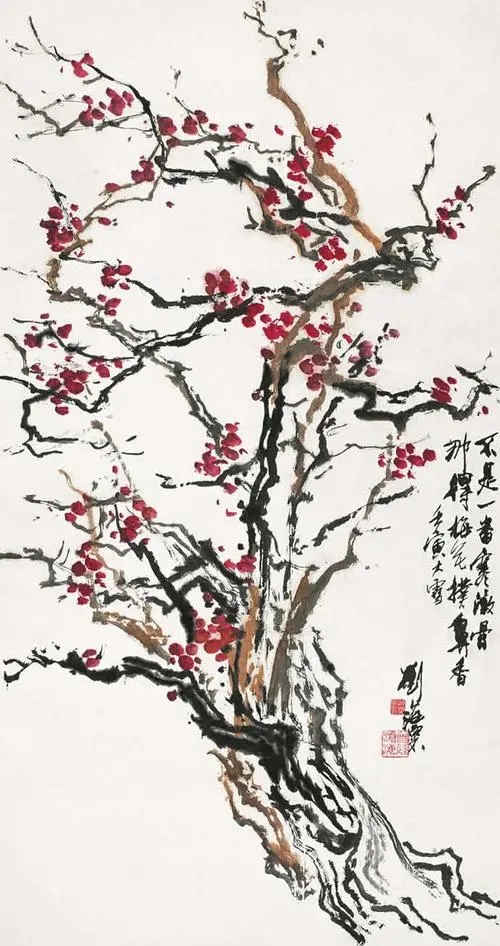 不是一番寒澈骨
那得梅花撲鼻香
壬寅大雪
劉海粟